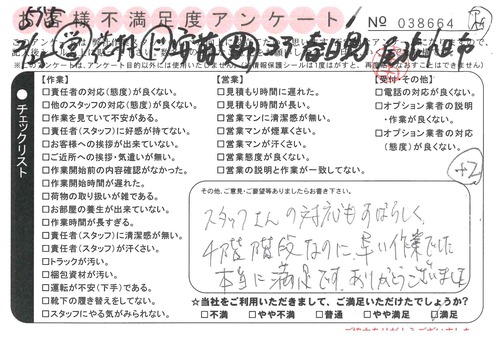 お客様不満足度アンケート
No 038664
※このアンケートは、アンケート目的以外には使用いたしません。
●チェックリスト
【作業】
□責任者の対応(態度)が良くない。
□他のスタッフの対応(態度)が良くない。
□作業を見ていて不安がある。
□責任者(スタッフ)に好感が持てない。
□お客様への挨拶が出来ていない。
□ご近所への挨拶・気遣いが無い。
□作業開始前の内容確認がなかった。
□作業開始時間が遅れた。
□荷物の取り扱いが雑である。
□お部屋の養生が出来ていない。
□作業時間が長すぎる。
□責任者(スタッフ)に清潔感が無い。
□責任者(スタッフ)が汗くさい。
□トラックが汚い。
□梱包資材が汚い。
□運転が不安(下手)である。
□靴下の履き替えをしてない。
□スタッフにやる気がみられない。
【営業】
□見積もり時間に遅れた。
□見積もり時間が長い。
□営業マンに清潔感が無い。
□営業マンが煙草くさい。
□営業マンが汗くさい。
□営業態度が良くない。
□営業の説明と作業が一致してない。
【受付・その他】
□電話の対応が良くない。
□オプション業者の説明
・作業が良くない。
□オプション業者の対応
(態度)が良くない。
+2
その他、ご意見・ご要望等ありましたらお書き下さい。
スタッフさんの対応もすばらしく、
4階階段なのに、早い作業でした
本当に満足です。ありがとうございました
☆当社をご利用いただきまして、ご満足いただけたでしょうか?
□不満 □やや不満 □普通 □やや満足 □満足